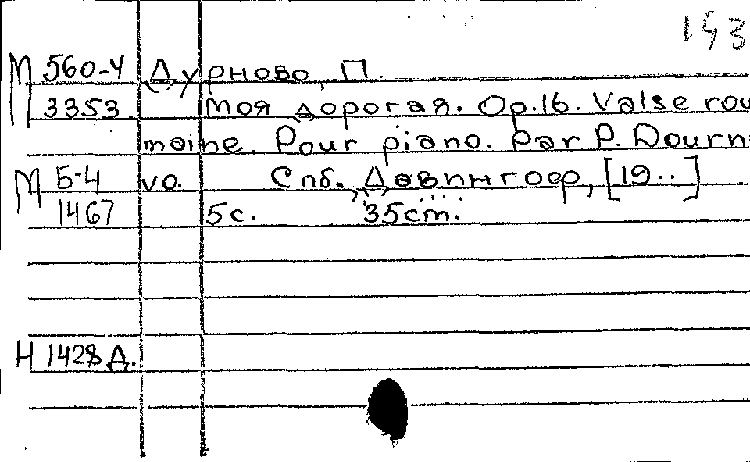 153
М 560-4 Дурново, П.
3353. Моя дорогая. Op.16. Valse rou
maine. Pour piano. Par P. Dourn
М Б-4 vo. Спб., Давингоф, [19..]
1467 5с. 35cm.
Н 1428 Д.